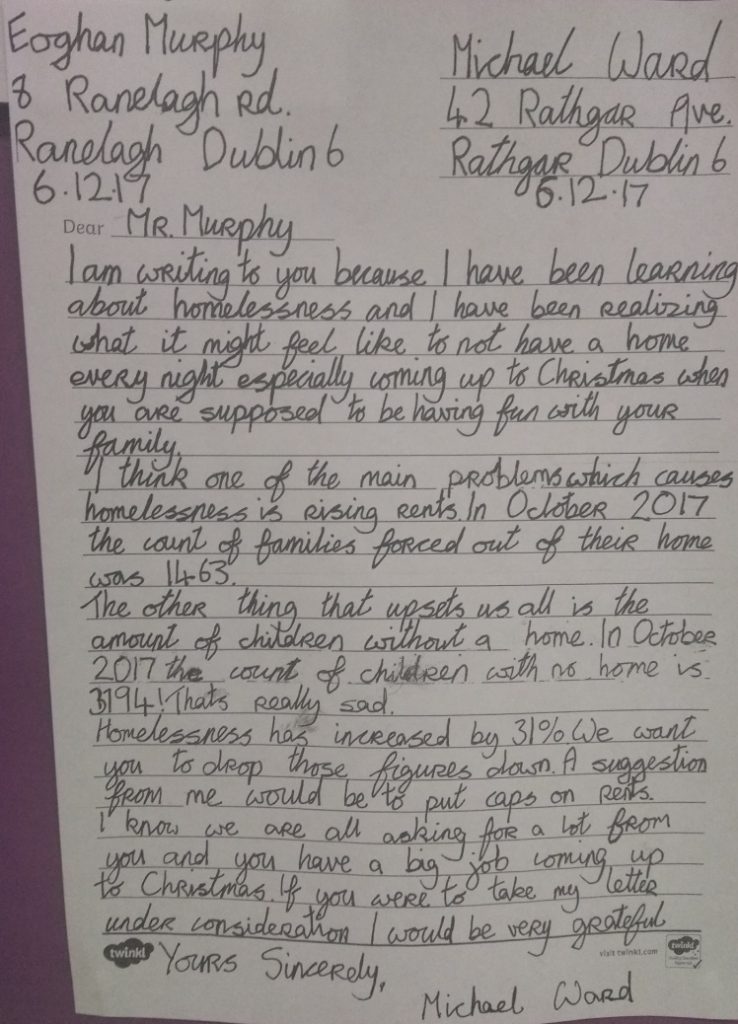 Eoghan Murphy
8 Ranelagh Rd.
Ranelagh Dublin 6
6.12.17
Michael Ward
42 Rathgar Ave.
Rathgar Dublin 6
6.12.17
Dear Mr. Murphy
I am writing to you because I have been learning
about homelessness and I have been realizing
what it might feel like to not have a home
every night especially coming up to Christmas when
you are supposed to be having fun with your
family.
I think one of the main problems which causes
homelessness is rising rents. In October 2017
the count of families forced out of their home
was 1463.
The other thing that upsets us all is the
amount of children without a home. In October
2017 the count of children with no home is
3194! Thats really sad.
Homelessness has increased by 31% We want
you to drop those figures down. A suggestion
from me would be to put caps on rents.
I know we are all asking for a lot from
you and you have a big job coming up
to Christmas. If you were to take my letter
under consideration I would be very grateful
twinkl
visit twinkl.com
twinkl
Yours Sincerely,
Michael Ward